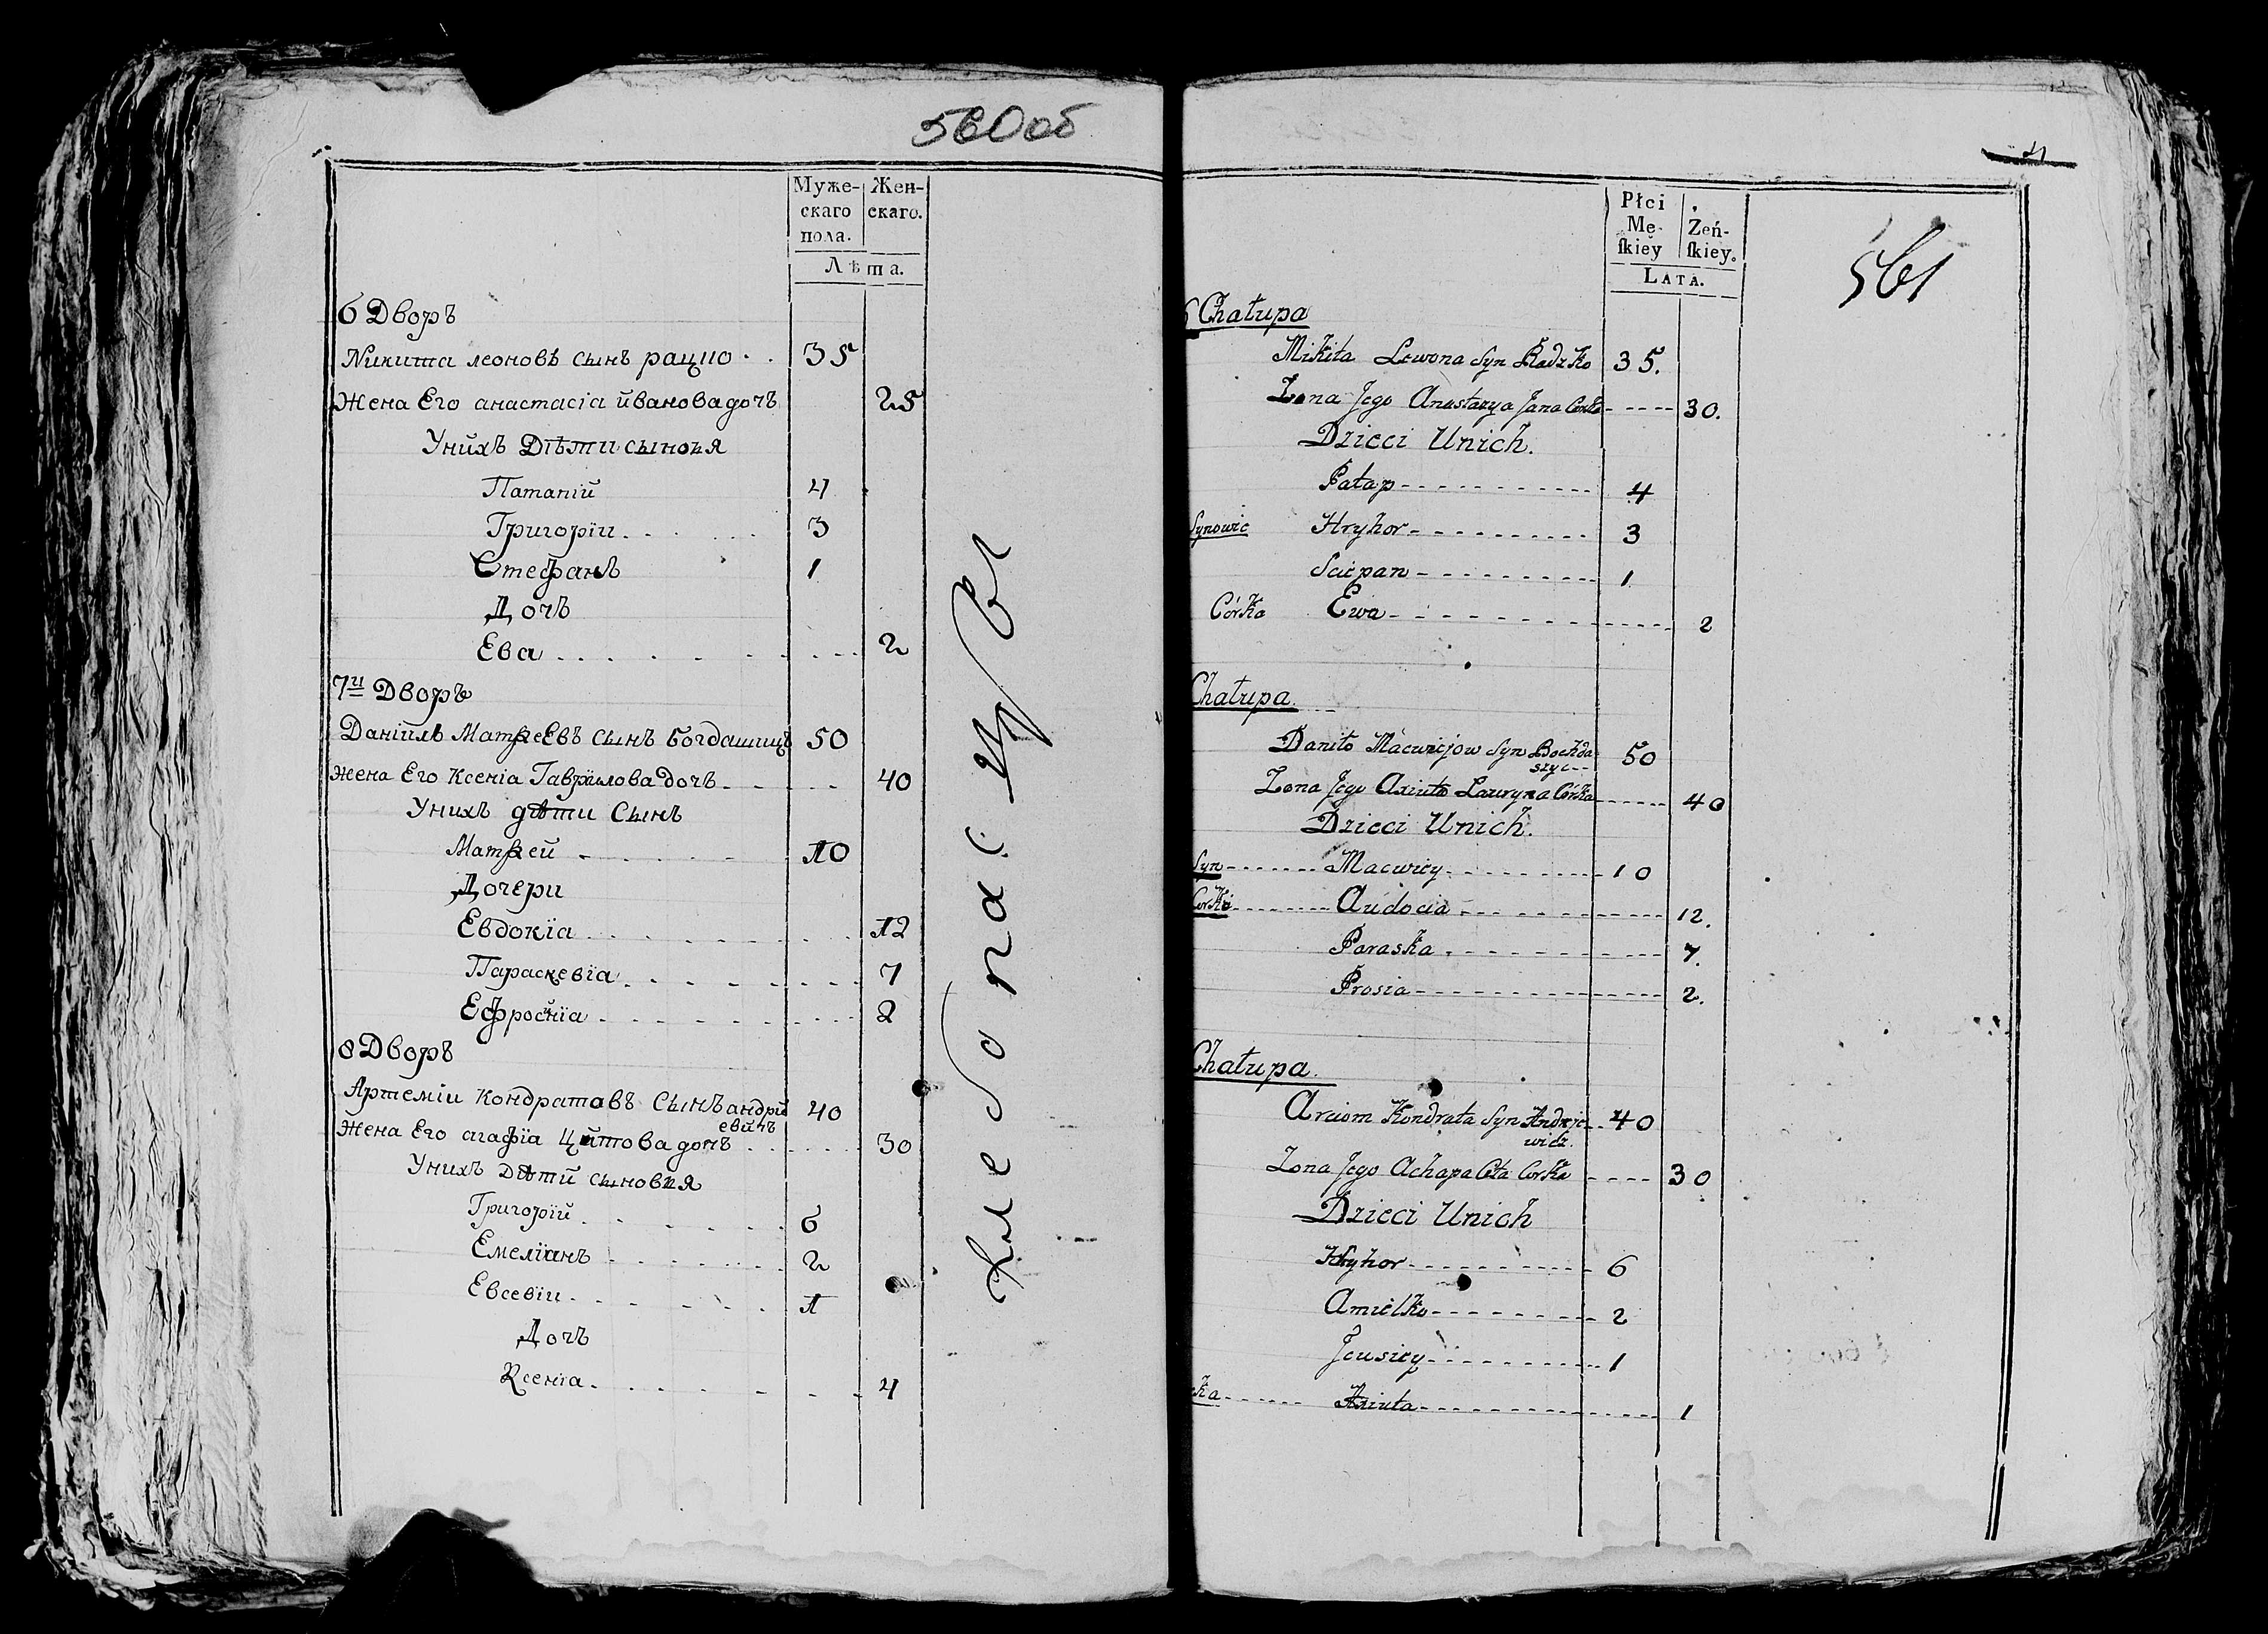 560об
Муже-
скаго
пола.
Жен-
скаго.
Лѣта.
6 Дворъ
Никита леоновъ сынъ рацко . . 35
Жена Его анастасіа йванова дочъ 25
Унихъ Дѣти сыновя
Патапій 4
Григорїи 3
Стефанъ 1
Дочъ
Ева 2
7й Дворъ
Данїилъ Матѳеевъ сынъ Богдашицъ 50
Жена Его Ксеніа Гаврилова дочъ 40
Унихъ дѣти Сынъ
Матѳей 10
Дочери
Евдокїа 12
Параскевїа 7
Ефросйнїа 2
8 Дворъ
Артеміи Кондратавъ Сынъ андрій 40
евичъ
Жена Его агафїа Цйтова дочъ 30
Унихъ Дѣтй сыновья
Григорїй 6
Емелїанъ 2
Евсевїи 1
Дочъ
Ксенїа 4
4
561
Płci
Mę-
ſkiey
Żeń-
ſkiey.
LATA.
Chałupa
Mikita Lewona Syn Radzko 35.
Żona Jego Anastazya Jana Corka 30.
Dzieci Unich.
Patap 4
Synowie Hryhor 3
Sciepan 1
Córka Ewa 2
Chałupa.
Daniło Macwiejow Syn Bochda 50
szyc
Zona Jego Axiuta Lauryna Córka 40
Dzieci Unich.
Syn Macwiey 10
Corki Audocia 12.
Paraska 7.
Prosia 2.
Chałupa.
Arciom Kondrata Syn Andrzje 40
wicz.
Zona Jego Achapa Cita Corka 30
Dzieci Unich
Hryhor 6
Amielko 2
Jeusiey 1
ka Axiuta 1